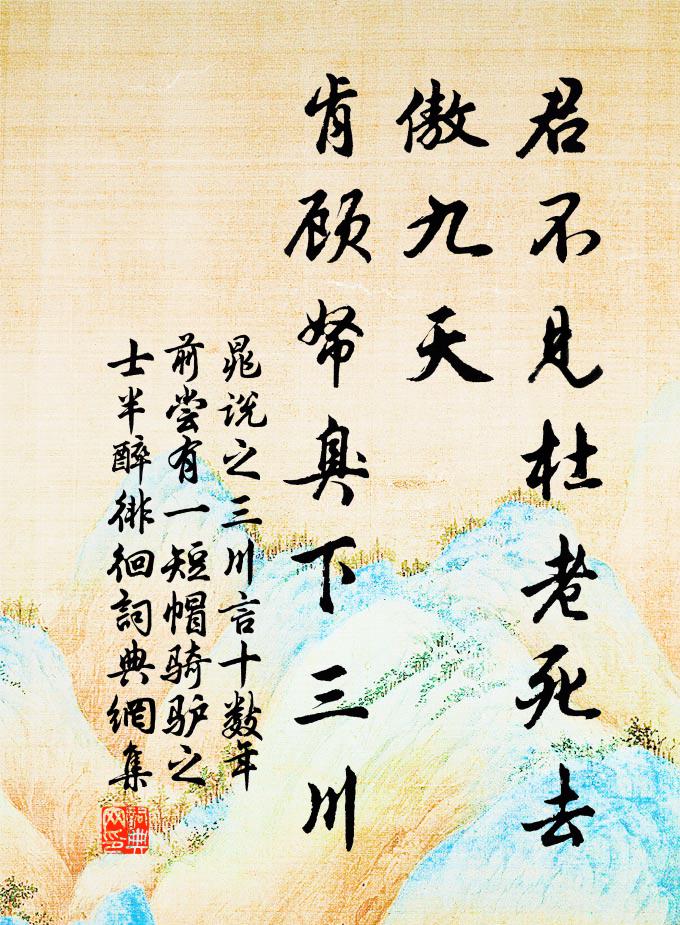 君不见杜老死去
傲九天
肯顾帑下三川
晁说之三川言十数年
前尝有一短帽骑驴之
士半醉徘徊詞典網集
詞典
网印